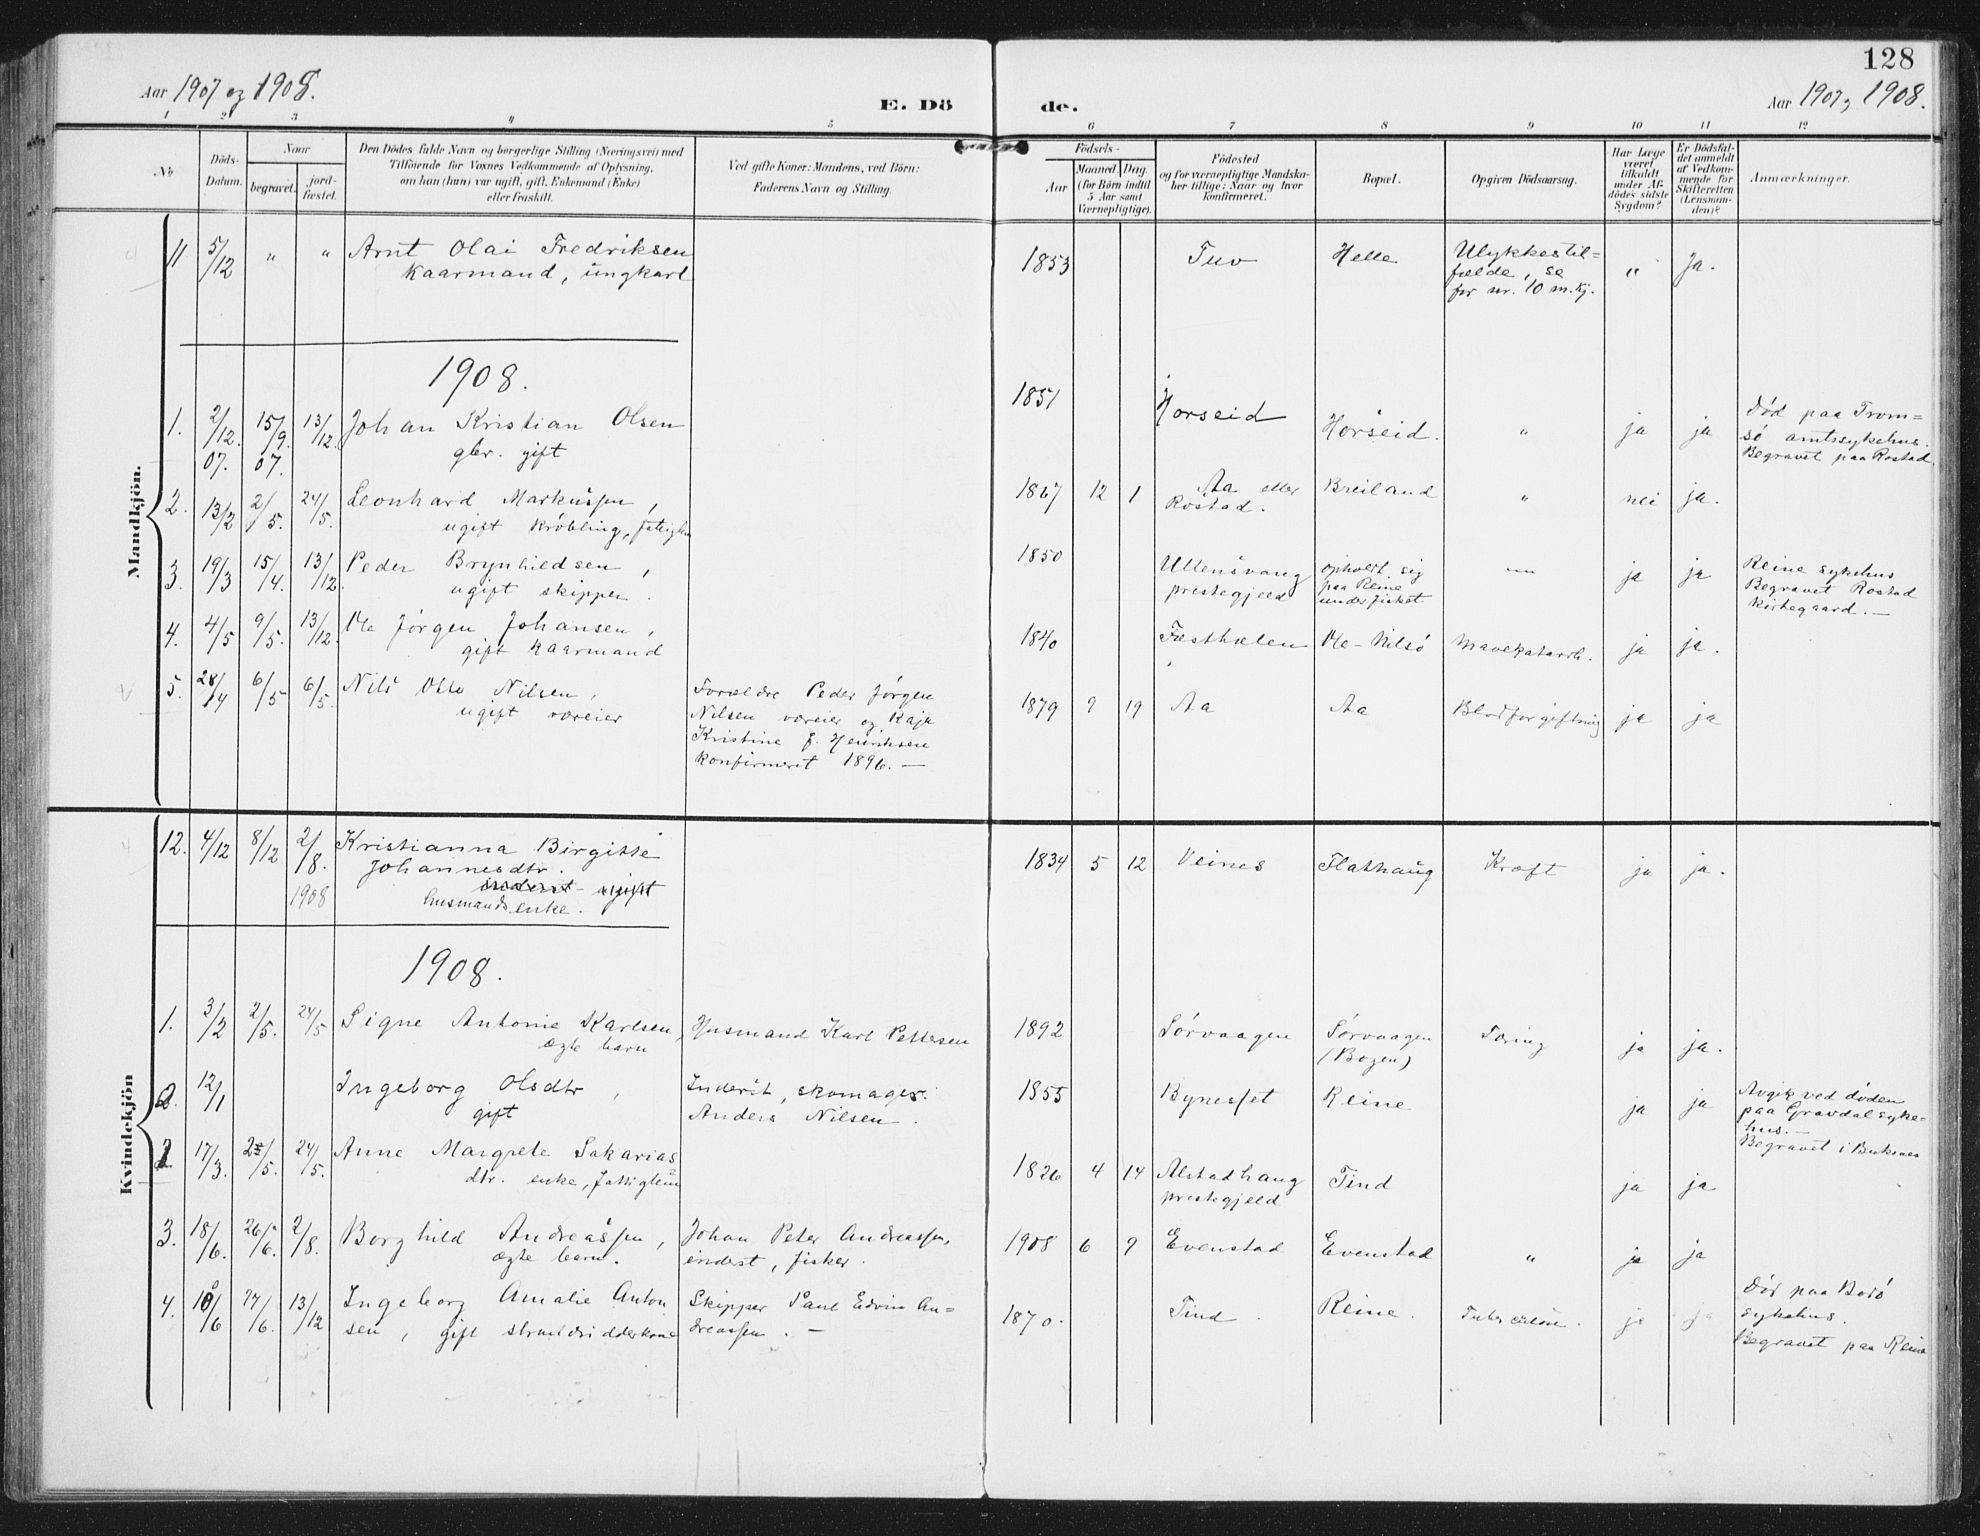 128
Aar 1907 og 1908.
E. Dö
de.
Aar 1907 1908.
1 2 3 4 5 6 7 8 9 10 11 12
No
Döds-
Datum.
Naar
begravet.
jord-
fæstet.
Den Dödes fulde Navn og borgerlige Stilling (Næringsvei) med
Tilföiende for Voxnes Vedkommende af Oplysning,
om han (hun) var ugift, gift, Enkemand (Enke)
eller fraskilt.
Ved gifte Koner: Mandens, ved Börn:
Faderens Navn og Stilling.
Födsels-
Aar
Maaned. Dag.
(for Börn indtil
5 Aar samt
Værnepligtige).
Födested
og for værnepligtige Mandska-
ber tillige: Naar og hvor
konfirmeret.
Bopæl.
Opgiven Dödsaarsag.
Har Læge
været
tilkaldt
under Af-
dödes sidste
Sygdom?
Er Dödsfal-
det anmeldt
af Vedkom-
mende for
Skifteretten
(Lensman-
den)?
Anmærkninger.
Mandkjön.
11 5/12 " " Arnt Olai Fredriksen
kaarmand, ungkarl
1853 Tuv Helle Ulykkestil=
fælde, se
for nr. 10 m.kj.
" Ja.
1908.
1. 2/12. 07. 15/9. 07. 13/12. Johan Kristian Olsen
gbr. gift
1851 Horseid Horseid. " ja ja
Död paa Trom=
sö amtssykehus.
Begravet paa Rostad
2. 13/2 2/5. 24/5. Leonhard Markussen,
ugift kröbling, fattiglem
1867 12 1 Aa eller
Rostad.
Breiland " nei ja.
3. 19/3 15/4. 13/12. Peder Brynhildsen,
ugift skipper.
1850 Ullensvang
prestegjeld
ophold. sig
paa Reine
under fisket
" ja ja
Reine sykehus
Begravet Rostad
kirkegaard. —
4. 4/5 9/5. 13/12. Ole Jörgen Johansen,
gift kaarmand
1840 Festhælen Ole-Nilsö Mavekatarrh. ja ja.
5. 28/4 6/5 6/5. Nils Otto Nilsen,
ugift væreier
Forældre Peder Jörgen
Nilsen væreier og Kaja
Kristine f. Henriksen
konfirmeret 1896. —
1879 9 19 Aa Aa Blodforgiftning ja ja
Kvindekjön
12. 4/12 8/12 2/8. 1908 Kristianna Birgitte
Johannesdtr.
inderst ugift
husmandsenke.
1834 5 12 Veines Flathaug Kræft ja ja.
1908.
1. 3/2 2/5. 24/5 Signe Antonie Karlsen,
ægte barn
Husmand Karl Pettersen
1892 Sörvaagen Sörvaagen
(Bogen)
Tæring ja ja.
2. 12/1 Ingeborg Olsdtr,
gift
Inderst, skomager.
Anders Nilsen.
1855 Bynesset Reine ja ja
Avgik ved döden
paa Gravdal syke-
hus. —
Begravet i Buksnes
2 17/3. 2/5. 24/5. Anne Margrete Sakarias=
dtr. enke, fattiglem
1826 4 14 Alstadhaug
prestegjeld
Tind ja ja
3. 18/6. 26/6. 2/8. Borghild Andreassen,
ægte barn.
Johan Peter Andreassen,
inderst, fisker.
1908 6 9 Evenstad Evenstad " ja ja
4. 10/6 17/6. 13/12 Ingeborg Amalie Anton
sen, gift strueldridderkone
Skipper Paul Edvin An=
dreassen. —
1870. Tind Reine. Tuberculose. ja ja
Död paa Bodö
sykehus.
Begravet paa Reine